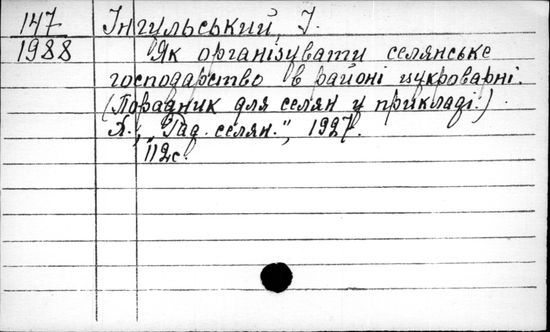 147 Інгульський, І.
1988 Як організувати селянське
господарство в районі цукроварні.
(Порадник для селян у прикладі.)
Х., "Рад. селян.", 1927.
112с.